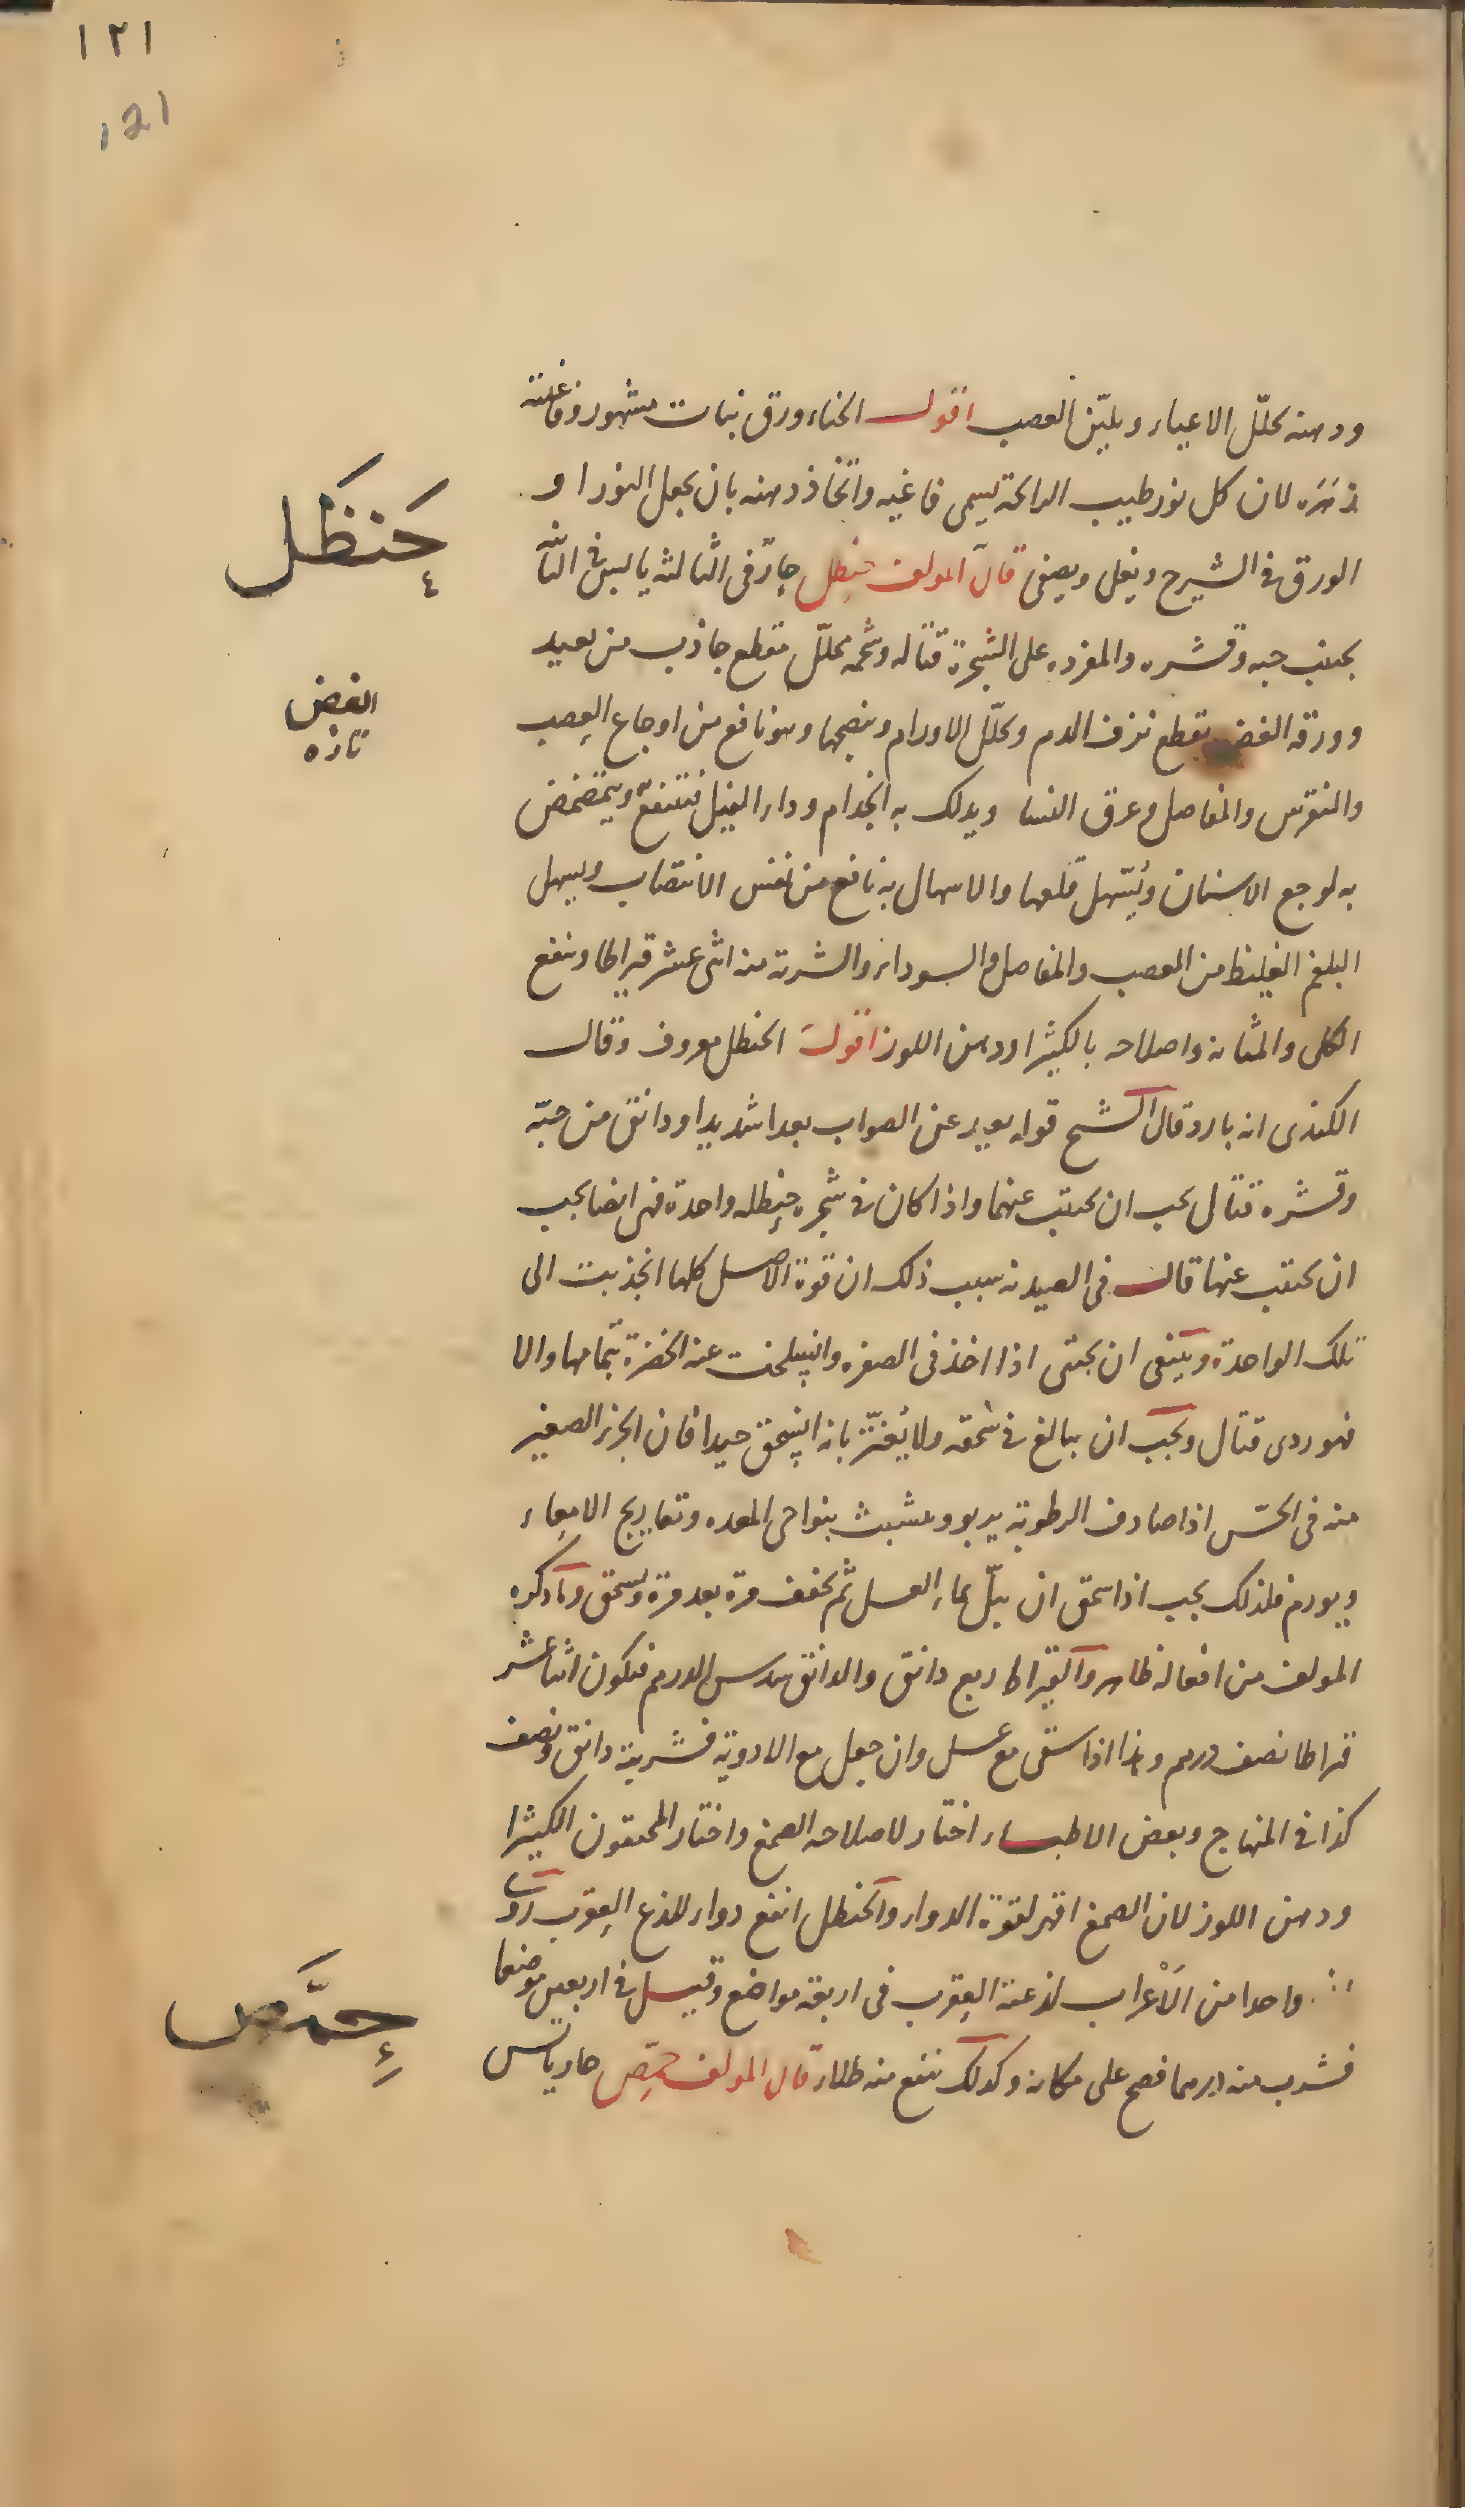 ١٢١
121
ودهنه يحلّل الاعياء ويليّن العصب اقول الحناء ورق نبات مشهور وفاغيته
زهره لان كل نور طيب الرائحة يسمى فاغيه واتخاذ دهنه بان يجعل النور او
الورق في الشيرج ويغلى ويصفى قال المولف حنظل حارّ في الثالثه يابس في الثالثه
يجتنب حبه وقشره والمفرده على الشجرة قتاله وشحمه محلّل مقطع جاذب من بعيد
وورقه الغض يقطع نزف الدم ويحلّل الاورام وينضجها وهو نافع من اوجاع العصب
والنقرس والمفاصل وعرق النسا ويدلك به الجذام وداء الفيل فينتفع ويتمضمض
به لوجع الاسنان ويُسهل قلعها والاسهال به نافع من نفس الانتصاب ويسهل
البلغم الغليظ من العصب والمفاصل والسوداء والشربة منه اثنى عشر قيراطا وينفع
الكلى والمثانه واصلاحه بالكثيرا ودهن اللوز اقول الحنظل معروف وقال
الكندى انه بارد قال الشيخ قوله بعيد عن الصواب بعدا شديدا ودانق من حبّه
وقشره قتال يجب ان يجتنب عنهما واذا كان في شجره حنظله واحدة فهى ايضا يجب
ان يجتنب عنها قال في الصيدنه سبب ذلك ان قوة الاصل كلها انجذبت الى
تلك الواحدة وينبغى ان يجتنى اذا اخذ في الصفره وانسلخت عنه الخضرة بتمامها والا
فهو ردى قتال ويجب ان يبالغ في سحقه ولا يُغترّ بانه انسحق جيدا فان الجزء الصغير
منه في الحسّ اذا صادف الرطوبة يربو ويتشبث بنواحى المعده وتعاريج الامعاء
ويورم فلذلك يجب اذا سحق ان يبلّ بماء العسل ثم يجفف مرة بعد مرة ويسحق وما ذكره
المولف من افعاله ظاهر والقيراط ربع دانق والدانق سدس الدرهم فيكون اثنا عشر
قيراطا نصف درهم وهذا اذا سقى مع عسل وان جعل مع الادوية فشربته دانق ونصف
كذا في المنهاج وبعض الاطباء اختار لاصلاحه الصمغ واختار المحققون الكثيرا
ودهن اللوز لان الصمغ اقهر لقوة الدواء والحنظل انفع دواء للذع العقرب روى
ان واحدا من الاَعْراب لذعته العقرب في اربعة مواضع وقيل في اربعين موضعا
فشرب منه درهما فصح على مكانه وكذلك ينفع منه طلاء قال المولف حمّص حار يابس
حَنظَل
الغض
تازه
حِمَّص